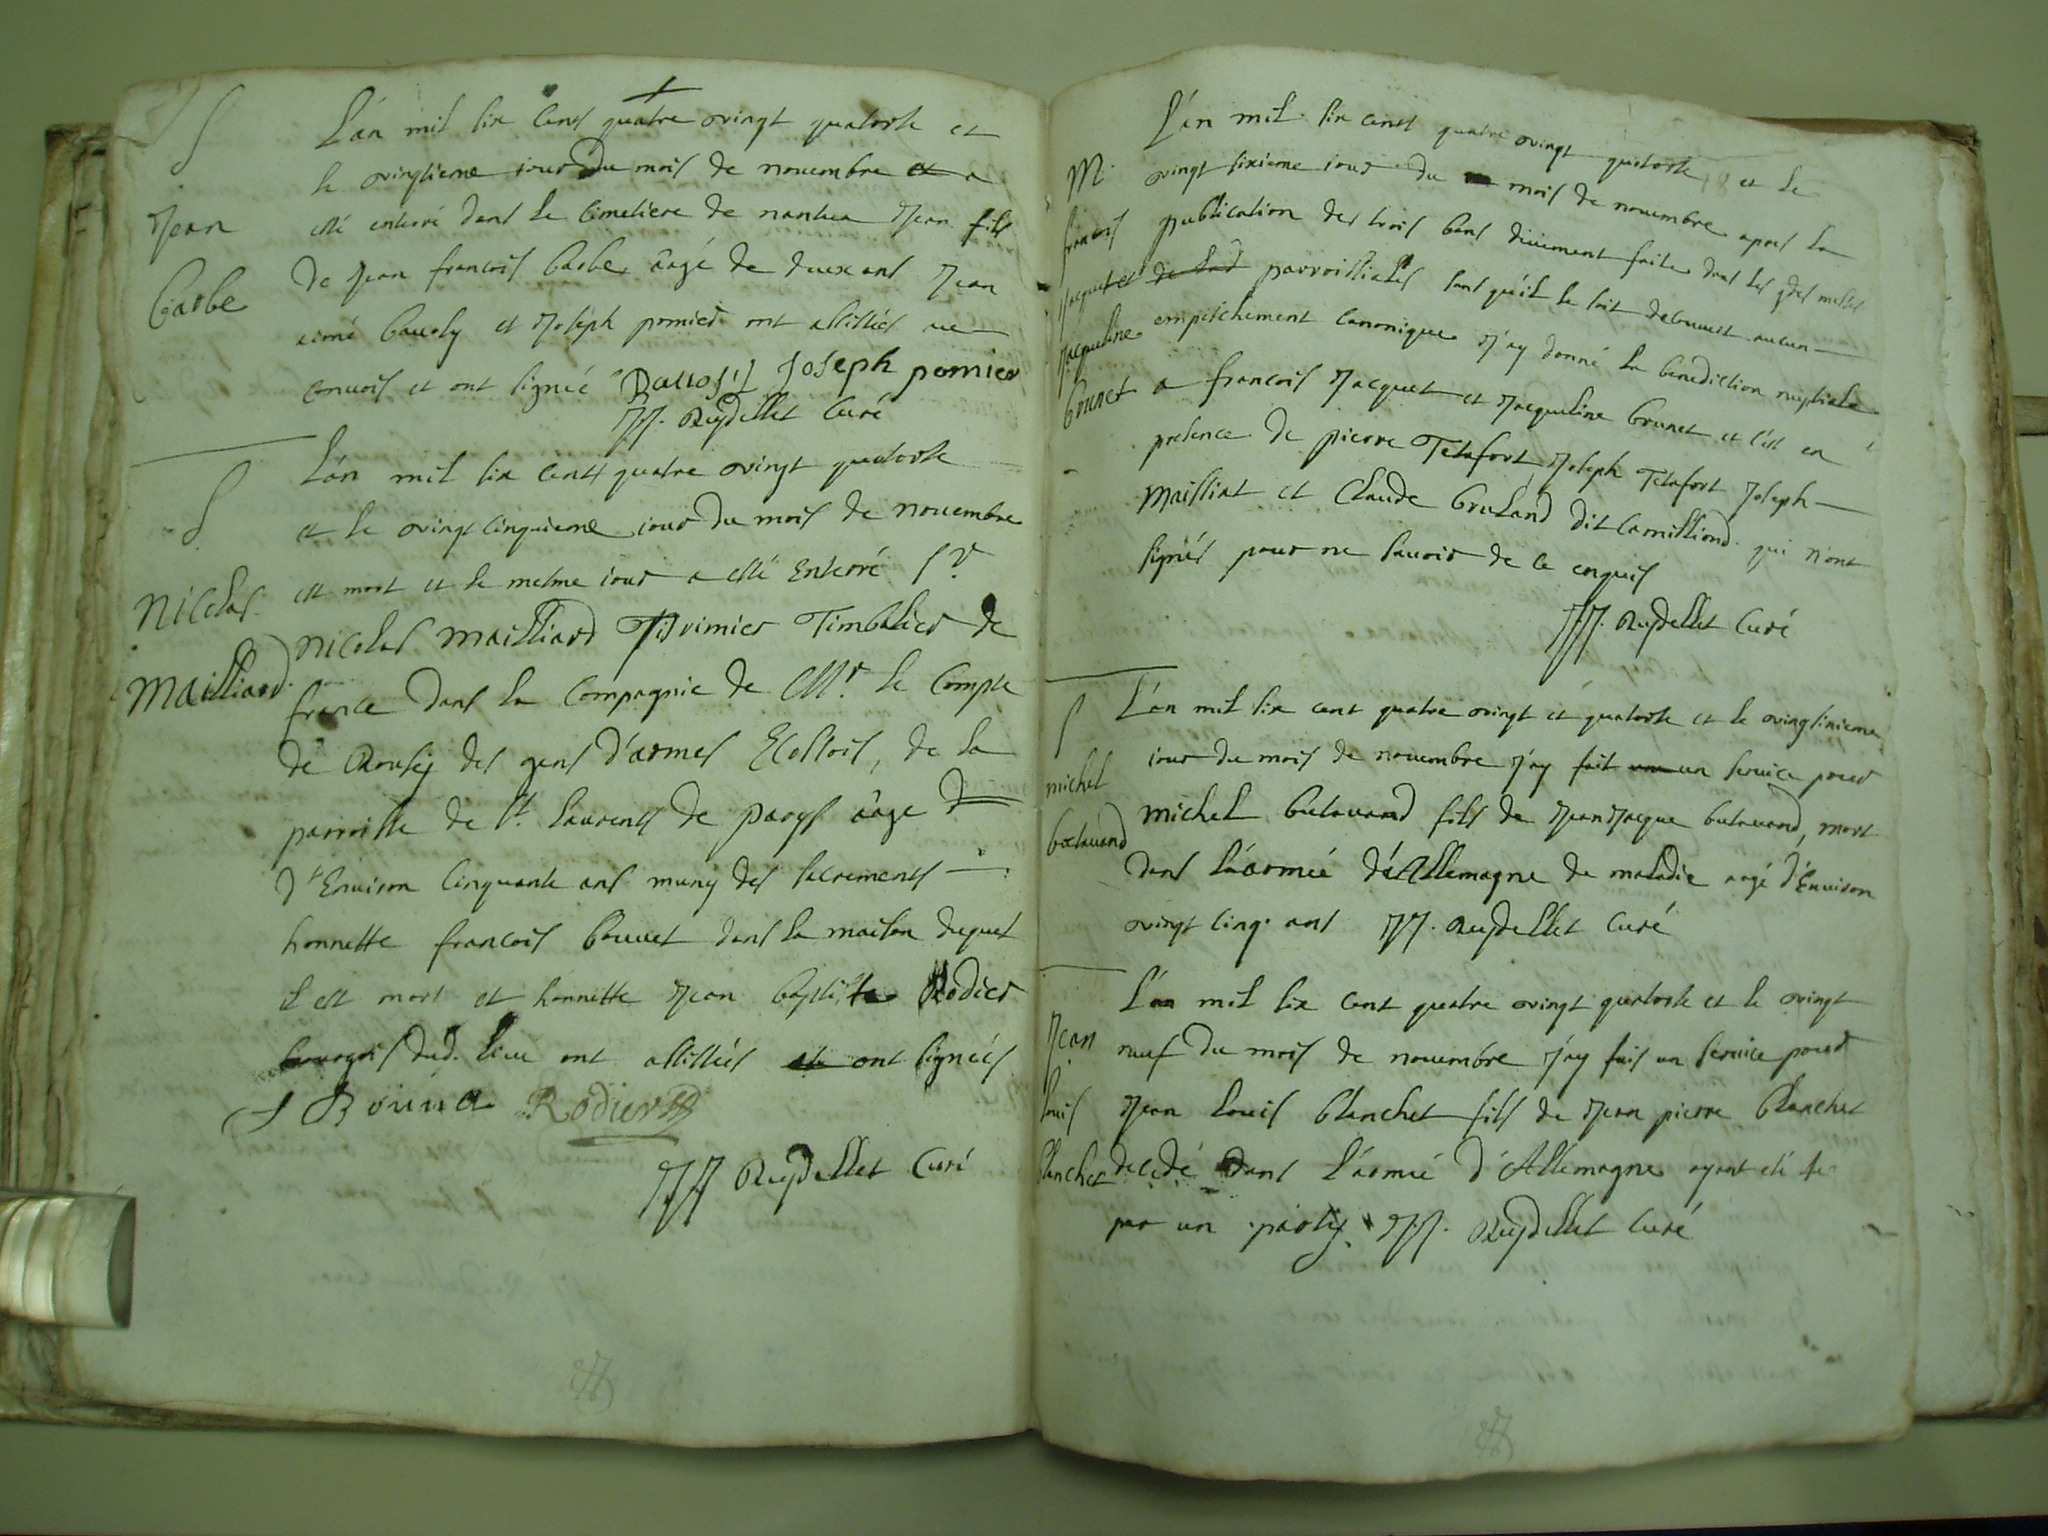 S
Jean
Barbe
L'an mil six cens quatre vingt quatorse et
le vingtieme jour du mois de novembre a
esté enterré dans le cimetiere de nantua Jean fils
de Jean francois barbe aagé de deux ans Jean
aimé et Joseph pomier ont assistés au
convois et ont signéé Joseph pomier
JJ. Ruydellet Curé
S
Nicolas
Mailliard
L'an mil six cents quatre vingt quatorse
et le vingt cinquieme jour du mois de novembre
est mort et le mesme jour a esté Enterré Sr
nicolas mailliard Primier Timbalier de
france dans la Compagnie de Mr le Compte
de des gens d'armes Ecossois, de la
parroisse de St Laurents de parys aage
d'Environ cinquante ans muny des sacrements
honnette francois bouuet dans la maison duquel
il est mort et honnette Jean baptiste Rodier
bourgois dud. lieu ont assistéés ont signéés
Rodier
JJ Ruydellet Curé
M.
francois
Jacquet et
Jacqueline
brunet
L'an mil six cents quatre vingt quatorse et le
vingt sixieme jour du mois de novembre apres la
publication des trois bans duement faite dans les messes
parroissiales sans qu'il se soit decouvert aucun
empeschement canonique J'ay donné la benediction nuptiale
a francois Jacquet et Jacqueline brunet et c'est en
presence de pierre Tetafort Joseph Tetafort Joseph
Maissiat et Claude bruland dit Camilliond qui n'ont
signés pour ne sauoir de ce enquis
JJ. Ruydellet Curé
S
michel
L'an mil six cent quatre vingt et quatorse et le vingtsixieme
jour du mois de novembre J'ay fait un service pour
michel butavand fils de Jean Jacque butavand, mort
dans l'armée d'Allemagne de maladie aagé d'Environ
vingt cinq ans JJ. Ruydellet Curé
Jean
Louis
blanchet
L'an mil six cent quatre vingt quatorse et le vingt
neuf du mois de novembre J'ay fais un service pour
Jean Louis blanchet fils de Jean pierre blanchet
decedé dans l'armée d'Allemagne ayant eté
par un party JJ. Ruydellet Curé